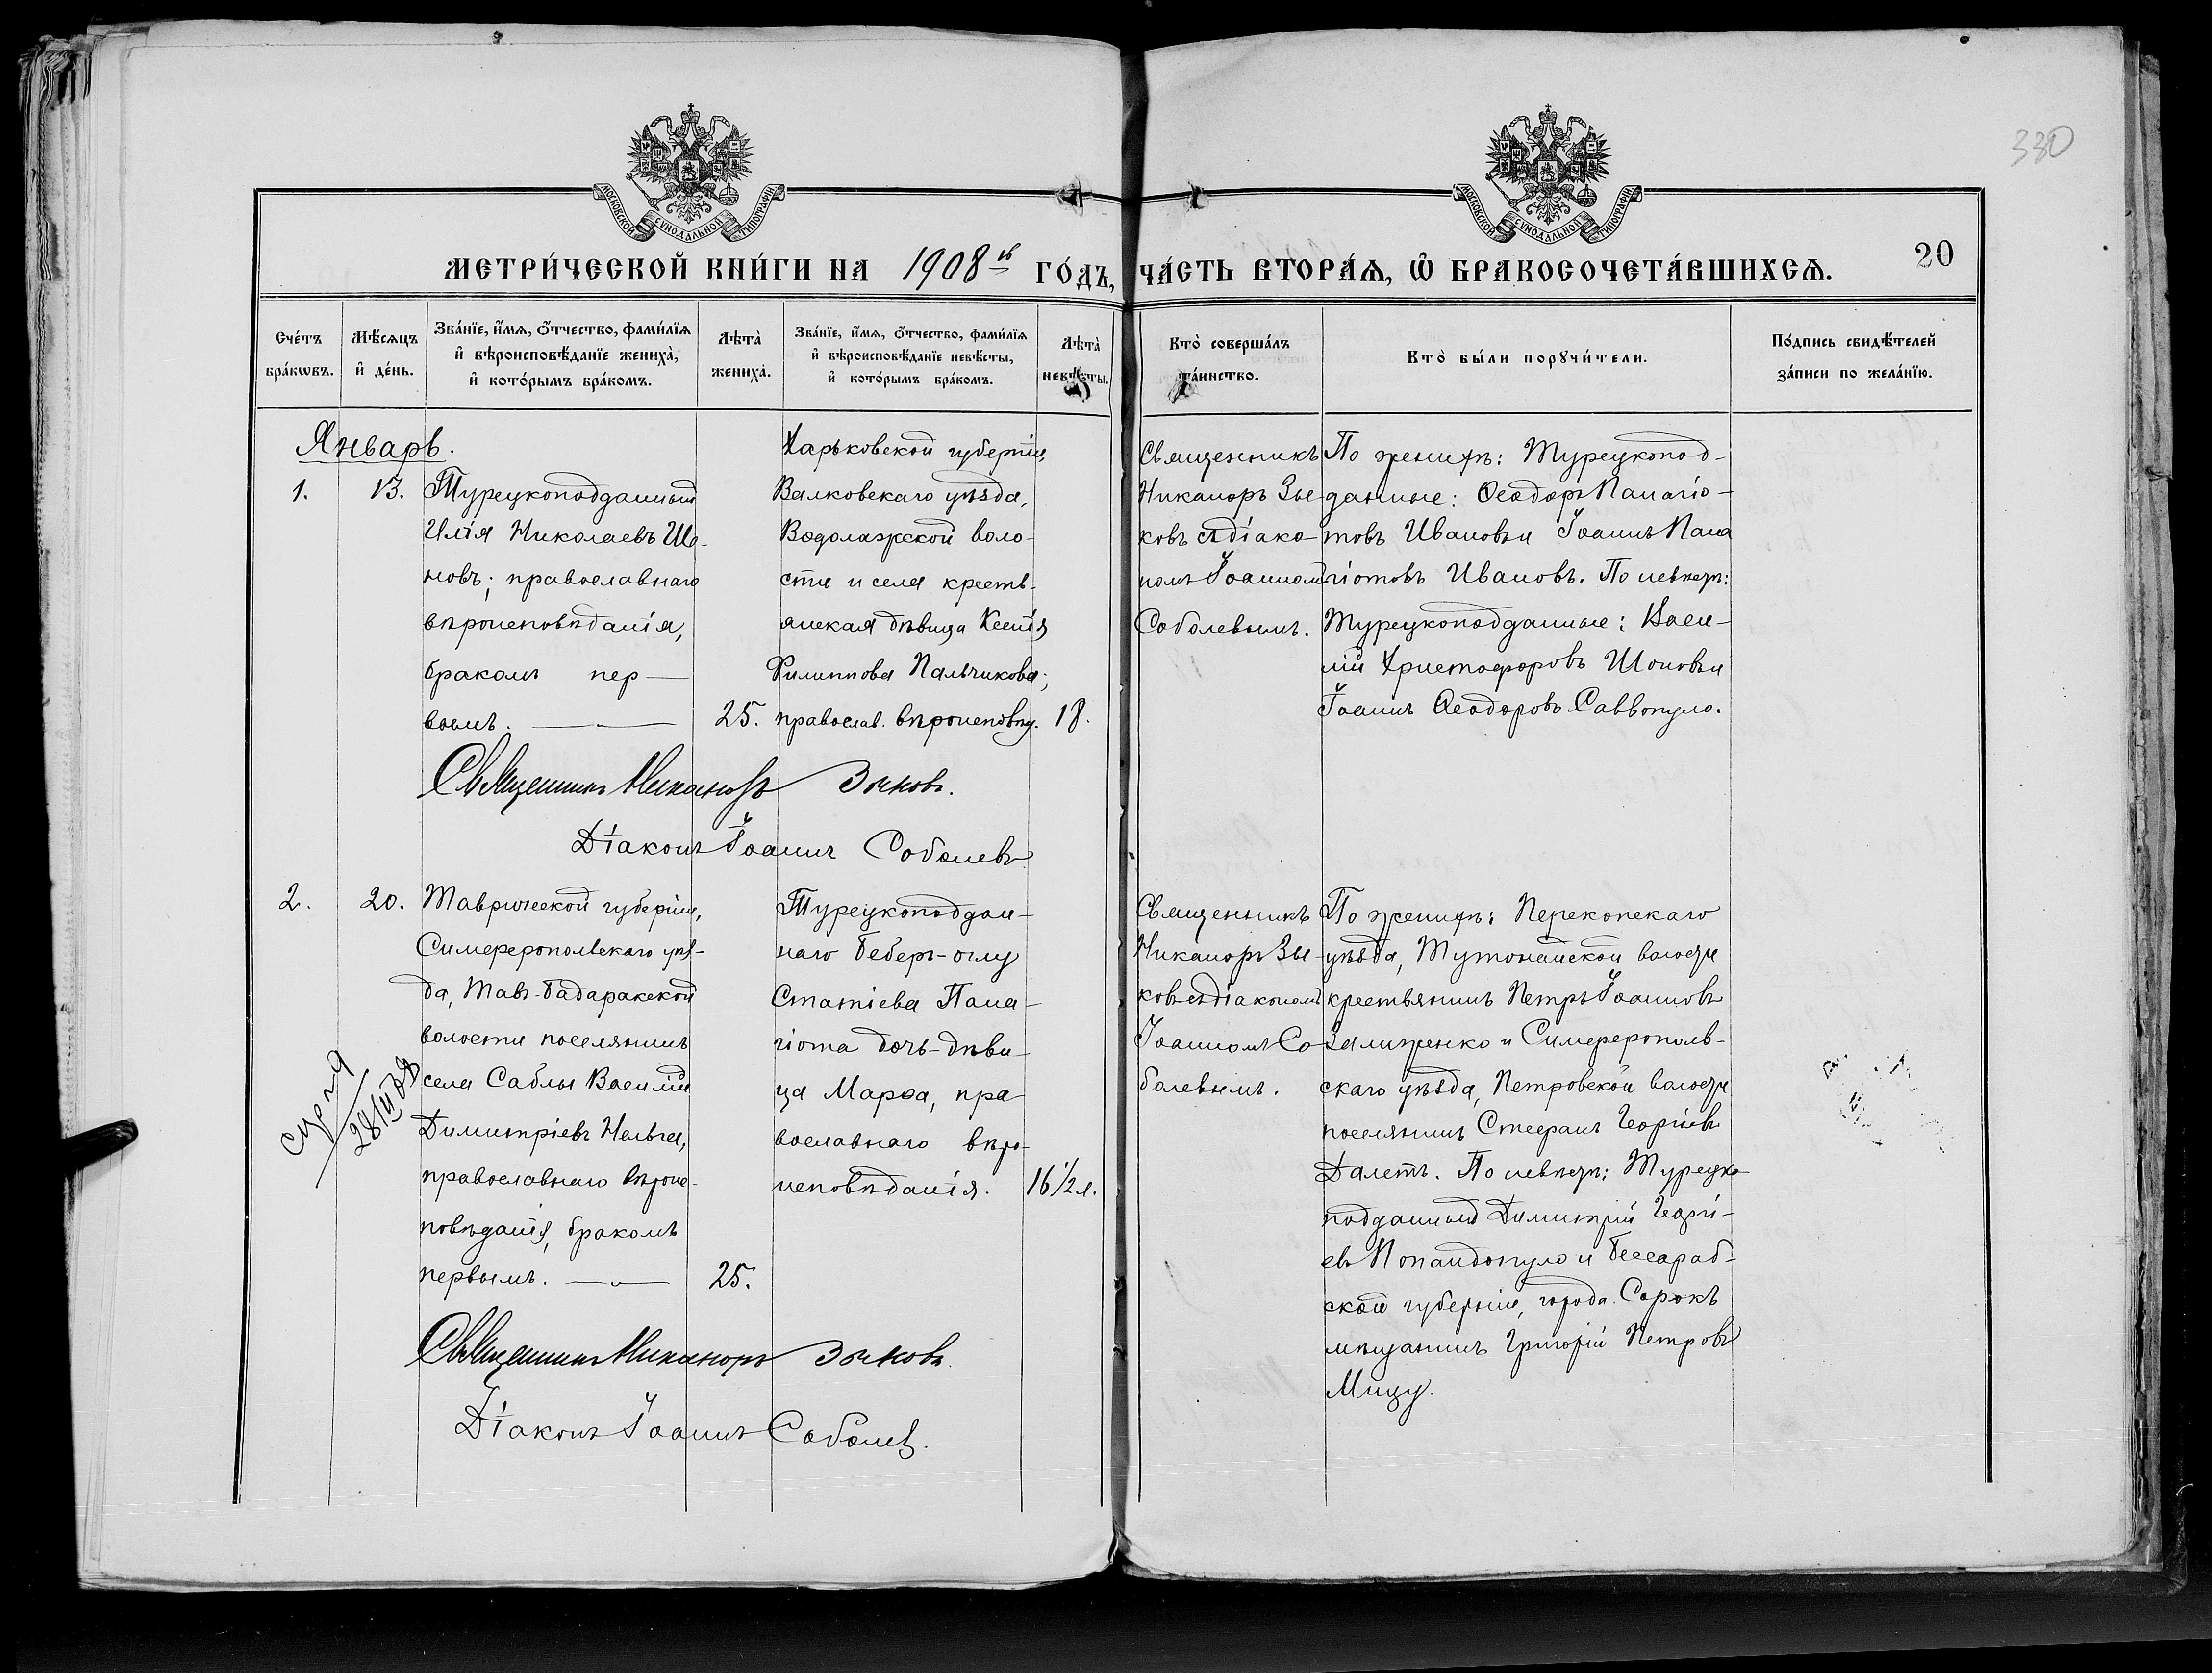 330
МОСКОВСКОЙ СУНОДАЛЬНОЙ ТИПОГРАФІИ
МОСКОВСКОЙ СУНОДАЛЬНОЙ ТИПОГРАФІИ
МЕТРИ́ЧЕСКОЙ КНИ́ГИ НА 1908й ГО́ДЪ, ЧА́СТЬ ВТОРА́Ѧ, Ѽ БРАКОСОЧЕТА́ВШИХСѦ.
20
Сче́тъ
бра́кѡвъ.
Мѣ́сѧцъ
и҆ де́нь.
Зва́нїе, и҆́мѧ, ѻ҆́тчество, фами́лїѧ
и҆ вѣроисповѣ́данїе жениха̀,
и҆ кото́рымъ бра́комъ.
Лѣта̀
жениха̀.
Зва́нїе, и҆́мѧ, ѻ҆́тчество, фами́лїѧ
и҆ вѣроисповѣ́данїе невѣ́сты,
и҆ кото́рымъ бра́комъ.
Лѣта̀
невѣ́сты.
Кто̀ соверша́лъ
та́инство.
Кто̀ бы́ли порꙋчи́тели.
По́дпись свидѣ́телей
за́писи по жела́нїю.
Январь.
1.
13.
Турецкоподданный
Илія Николаевъ Шо-
новъ; православнаго
вѣроисповѣданія,
бракомъ пер-
вымъ.
25.
Харьковской губерніи,
Валковскаго уѣзда,
Водолажской воло-
сти и села кресть-
янская дѣвица Ксенія
Филиппова Пальчикова;
православ. вѣроисповѣд.
18.
Священникъ
Никаноръ Зы-
ковъ с діако-
номъ Іоанномъ
Соболевымъ.
По женихѣ: Турецкопод-
данные: Ѳеодоръ Панагіо-
товъ Ивановъ и Іоаннъ Пана
гіотовъ Ивановъ. По невѣстѣ:
Турецкоподданные: Васи-
лій Христофоровъ Шоновъ и
Іоаннъ Ѳеодоровъ Саввопуло.
Священникъ Никаноръ Зыковъ.
Діаконъ Іоаннъ Соболевъ
2.
20.
Таврической губерніи,
Симферопольскаго уѣз-
да, Тавъ-Бадаракской
волости поселянинъ
села Саблы Василій
Димитріевъ Нельга,
православнаго вѣроис-
повѣданія, бракомъ
первымъ.
25.
28/IV 08
Турецкоподдан-
наго Беберъ-оглу
Статіева Пана-
гіота дочь-дѣви-
ца Марѳа, пра-
вославнаго вѣро-
исповѣданія.
16 1/2 л.
Священникъ
Никаноръ Зы-
ковъ с діакономъ
Іоанномъ Со-
болевымъ.
По женихѣ: Перекопскаго
уѣзда, Тутонайской волости
крестьянинъ Петръ Іоанновъ
Зализенко и Симферополь-
скаго уѣзда, Петровской волости
поселянинъ Стефанъ Георгіевъ
Далетъ. По невѣстѣ: Турецко-
подданный Димитрій Георгі-
евъ Попандопуло и Бессараб-
ской губерніи, города Сорокъ
мѣщанинъ Григорій Петровъ
Мицу.
Священникъ Никаноръ Зыковъ.
Діаконъ Іоаннъ Соболевъ.